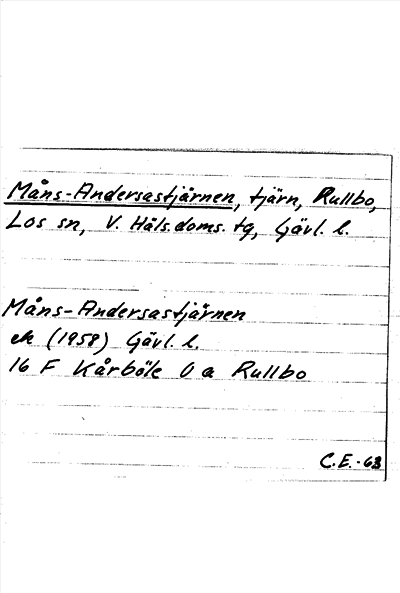 Måns-Andersastjärnen, tjärn, Rullbo,
Los sn, V. Häls. doms. tg, Gävl. l.
Måns-Andersastjärnen
ek (1958) Gävl. l.
16 F Kårböle U a Rullbo
C.E.-63